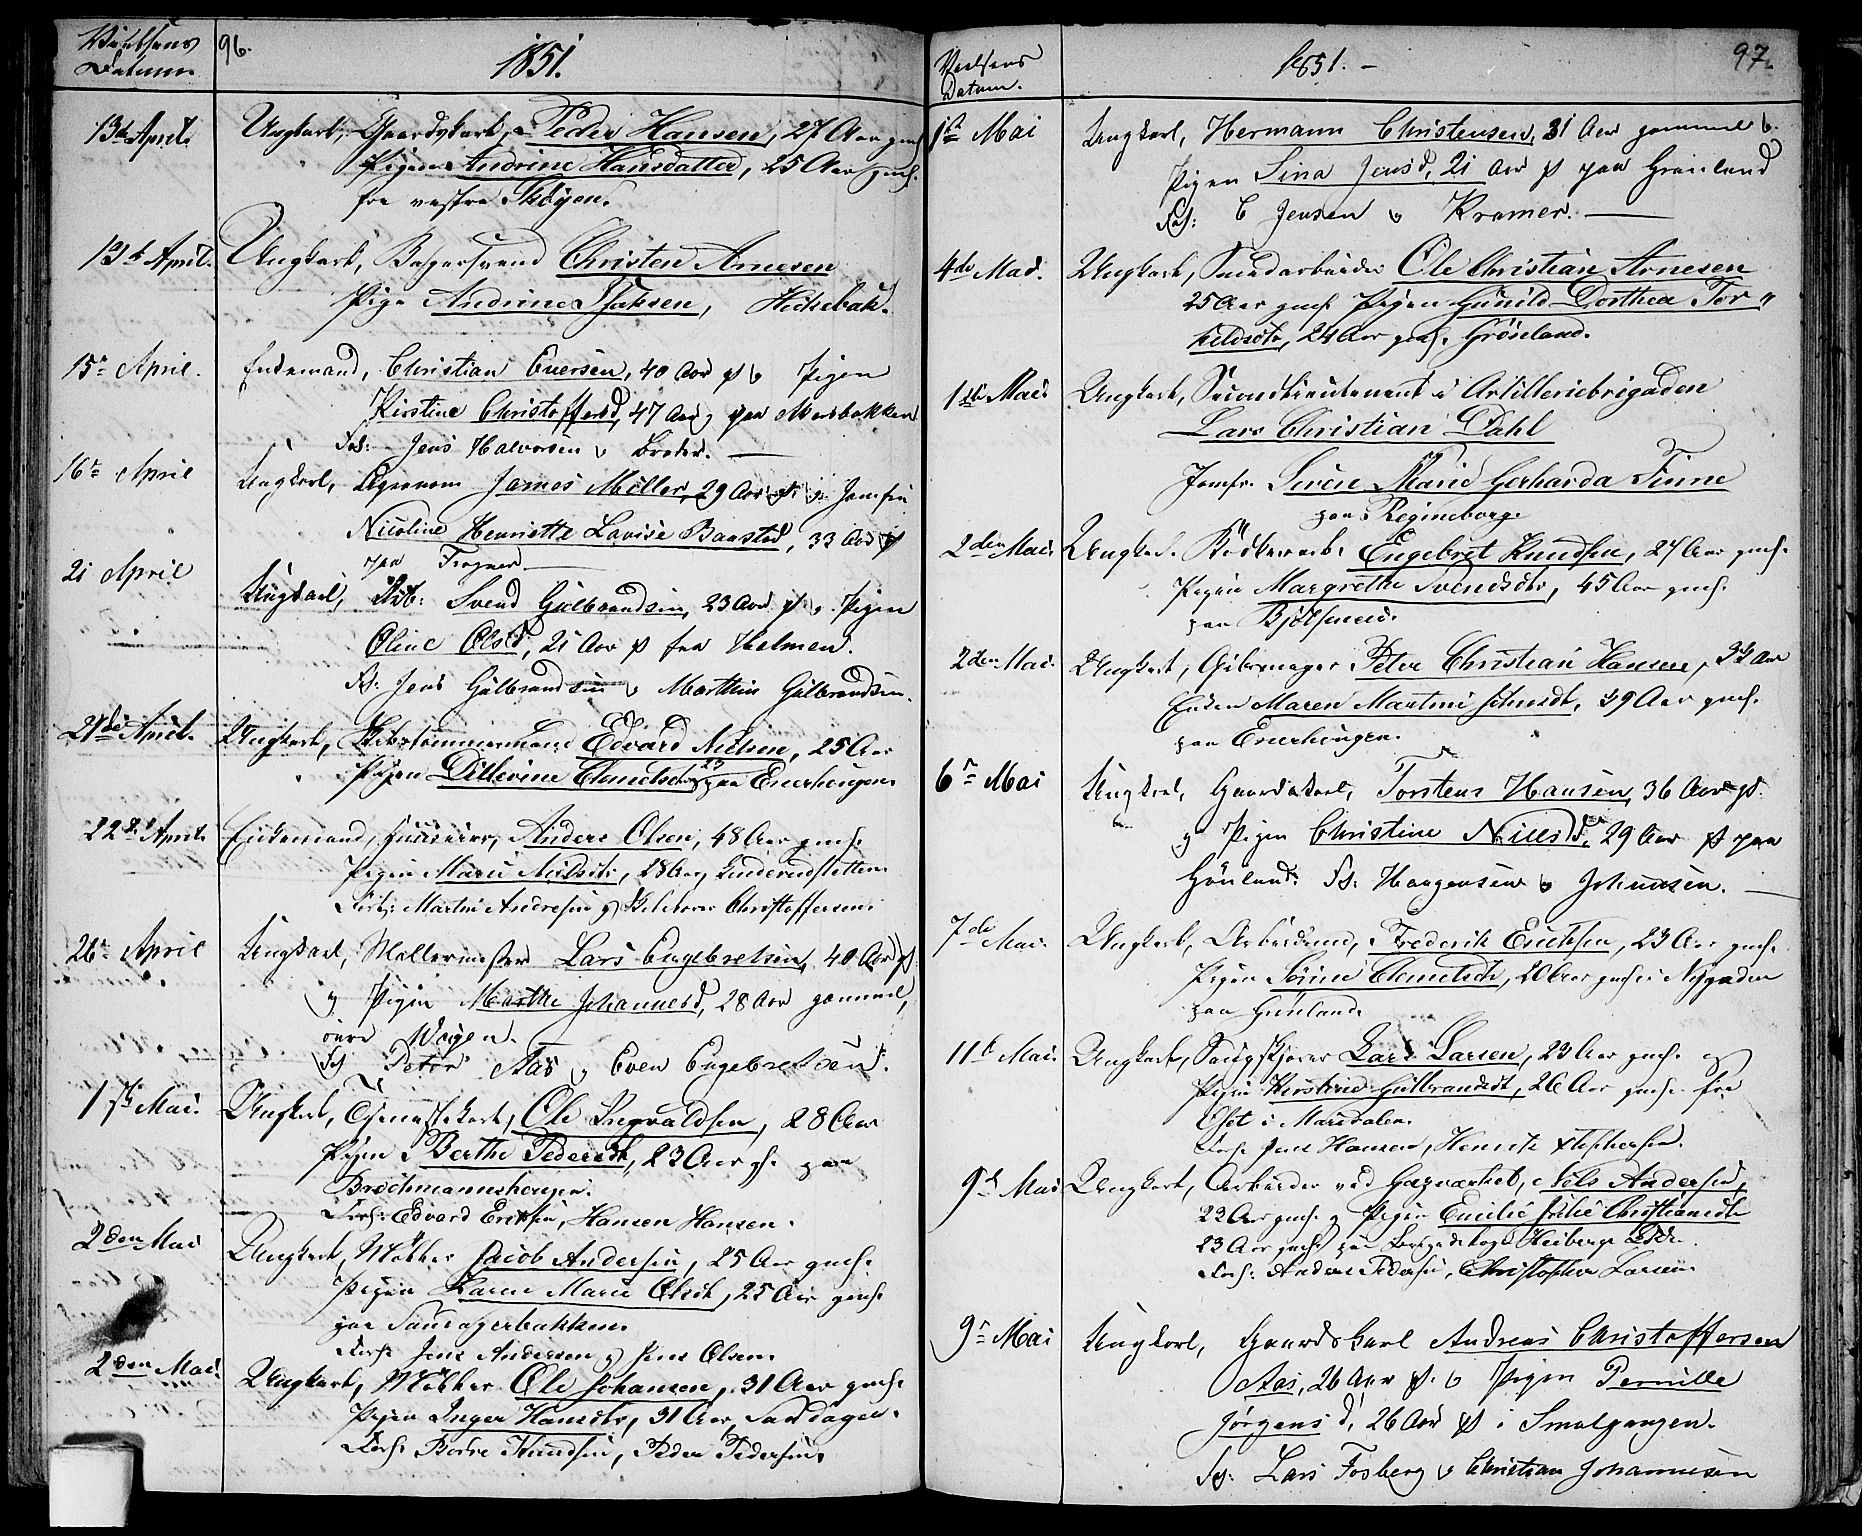 Vielsens Datum
96.
1851.
13de April. Ungkarl, Gaardskarl, Peder Hansen, 27 Aar gml.
Pigen Andrine Hansdatter, 25 Aar gml.
fra vestre Thøyen.
13de April. Ungkarl, Bagersvend Christen Arnesen
Pige Andrine Isaksen,
15de April. Enkemand, Christian Eversen, 40 Aar g. og Pigen
Kirstine Christoffersd, 47 Aar, paa
Forl: Jens Halvorsen og Broder.
16de April Ungkarl, James Miller, 29 Aar g. og Jomfru
Nicoline Henriette Lovise Baastad, 33 Aar g
paa Frogner
21 April Ungkarl, Arb: Svend Gulbrandsen, 23 Aar g. og Pigen
Oline Olsd, 21 Aar g fra Hielmen.
F: Jens Gulbrandsen og Marthin Gulbrandsen.
21de April. Ungkarl, Skibstømmermand Edvard Nilsen, 25 Aar
Pigen Dillevine Clemetsdtr 23 paa Enerhougen.
22de April. Enkemand, Anders Olsen, 48 Aar gml.
Pigen Marie Nielsdtr, 28 Aar,
Forl: Martin Andresen og Christoffersen.
26de April Ungkarl, Møllermester Lars Engebretsen, 40 Aar g.
og Pigen Marthe Johannesd, 28 Aar gammel,
øvre Vøyen.
F: Peter Aas og Even Engebretsen.
1ste Mai. Ungkarl, Ole Ingvaldsen, 28 Aar
Pigen Berthe Pedersdtr, 23 Aar g. paa
Brochmannshougen.
Forl: Edvard Eriksen, Hansen Hansen.
2den Mai Ungkarl, Jacob Andersen, 25 Aar gml.
Pigen Karen Marie Olsdt, 25 Aar gml.
paa Sandagerbakken.
Forl: Jens Andersen og Jens Olsen.
2den Mai. Ungkarl, Ole Johansen, 31 Aar gml.
Pigen Inger Hansdtr, 31 Aar, Sandager.
Forl: Knudsen, Peder Pedersen.
Vielsens Datum.
1851. –
97.
1ste Mai Ungkarl, Hermann Christensen, 31 Aar gammel og
Pigen Sina Jensd, 21 Aar g paa Grønland
Forl: C Jensen og Kramer.
4de Mai. Ungkarl, Ole Christian Arnesen
25 Aar gml. Pigen Gunild Dorthea Tor-
kildsdtr, 24 Aar gml. Grønland.
1ste Mai Ungkarl, Secondlieutenant i Artilleriebrigaden
Lars Christian Dahl
Jomfr. Sivine Marie Gerharda Finne
paa Regineborg.
2den Mai. Ungkarl. Engebret Knudsen, 27 Aar gml.
Pigen Margrethe Svendsdtr, 45 Aar gml.
paa Bjølsen.
2den Mai. Ungkarl, Peter Christian Hansen, Aar
Enken Maren Martine Schmidt, 39 Aar gml.
paa Enerhougen.
6te Mai Ungkarl, Gaardskarl, Torsten Hansen, 36 Aar g.
og Pigen Christine Nilsd, 29 Aar g paa
Grønland. F: Haagensen og Johnsen.
7de Mai. Ungkarl, Arbeidsmd, Frederik Erichsen, 23 Aar gml.
Pigen Sørine Clemetsdtr, 20 Aar gml. i Nygaden
paa Grønland.
11te Mai. Ungkarl, Lars Larsen, 23 Aar gml. og
Pigen Kirstine Gulbrandsdt, 26 Aar gml. fra
Oset i Maridalen.
Forl: Jens Hansen, Henrik
9de Mai Ungkarl, Arbeider ved Gasværket, Nils Andersen,
23 Aar gml. og Pigen Emilie Julie Christiansdtr
23 Aar gml. paa Heibergs
Forl: Anders Pedersen, Christopher Larsen.
9de Mai Ungkarl, Gaardskarl Andreas Christoffersen
Aas, 26 Aar g. og Pigen Pernille
Jørgensd, 26 Aar g i Smalgangen.
F: Lars Fosberg og Christian Johannesen